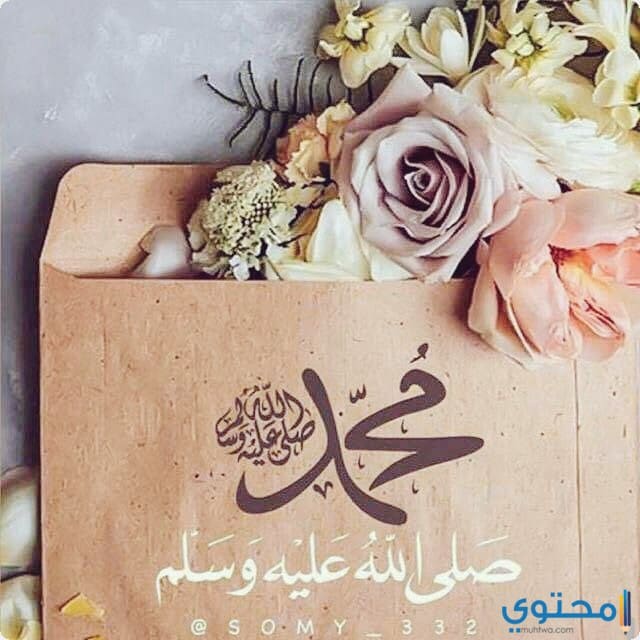 مُحَمَّد
صلى الله عليه وسلم
صَلى اللهُ عَليْه وَسَلّم
@SOMY_332
محتوي
muhtwa.com